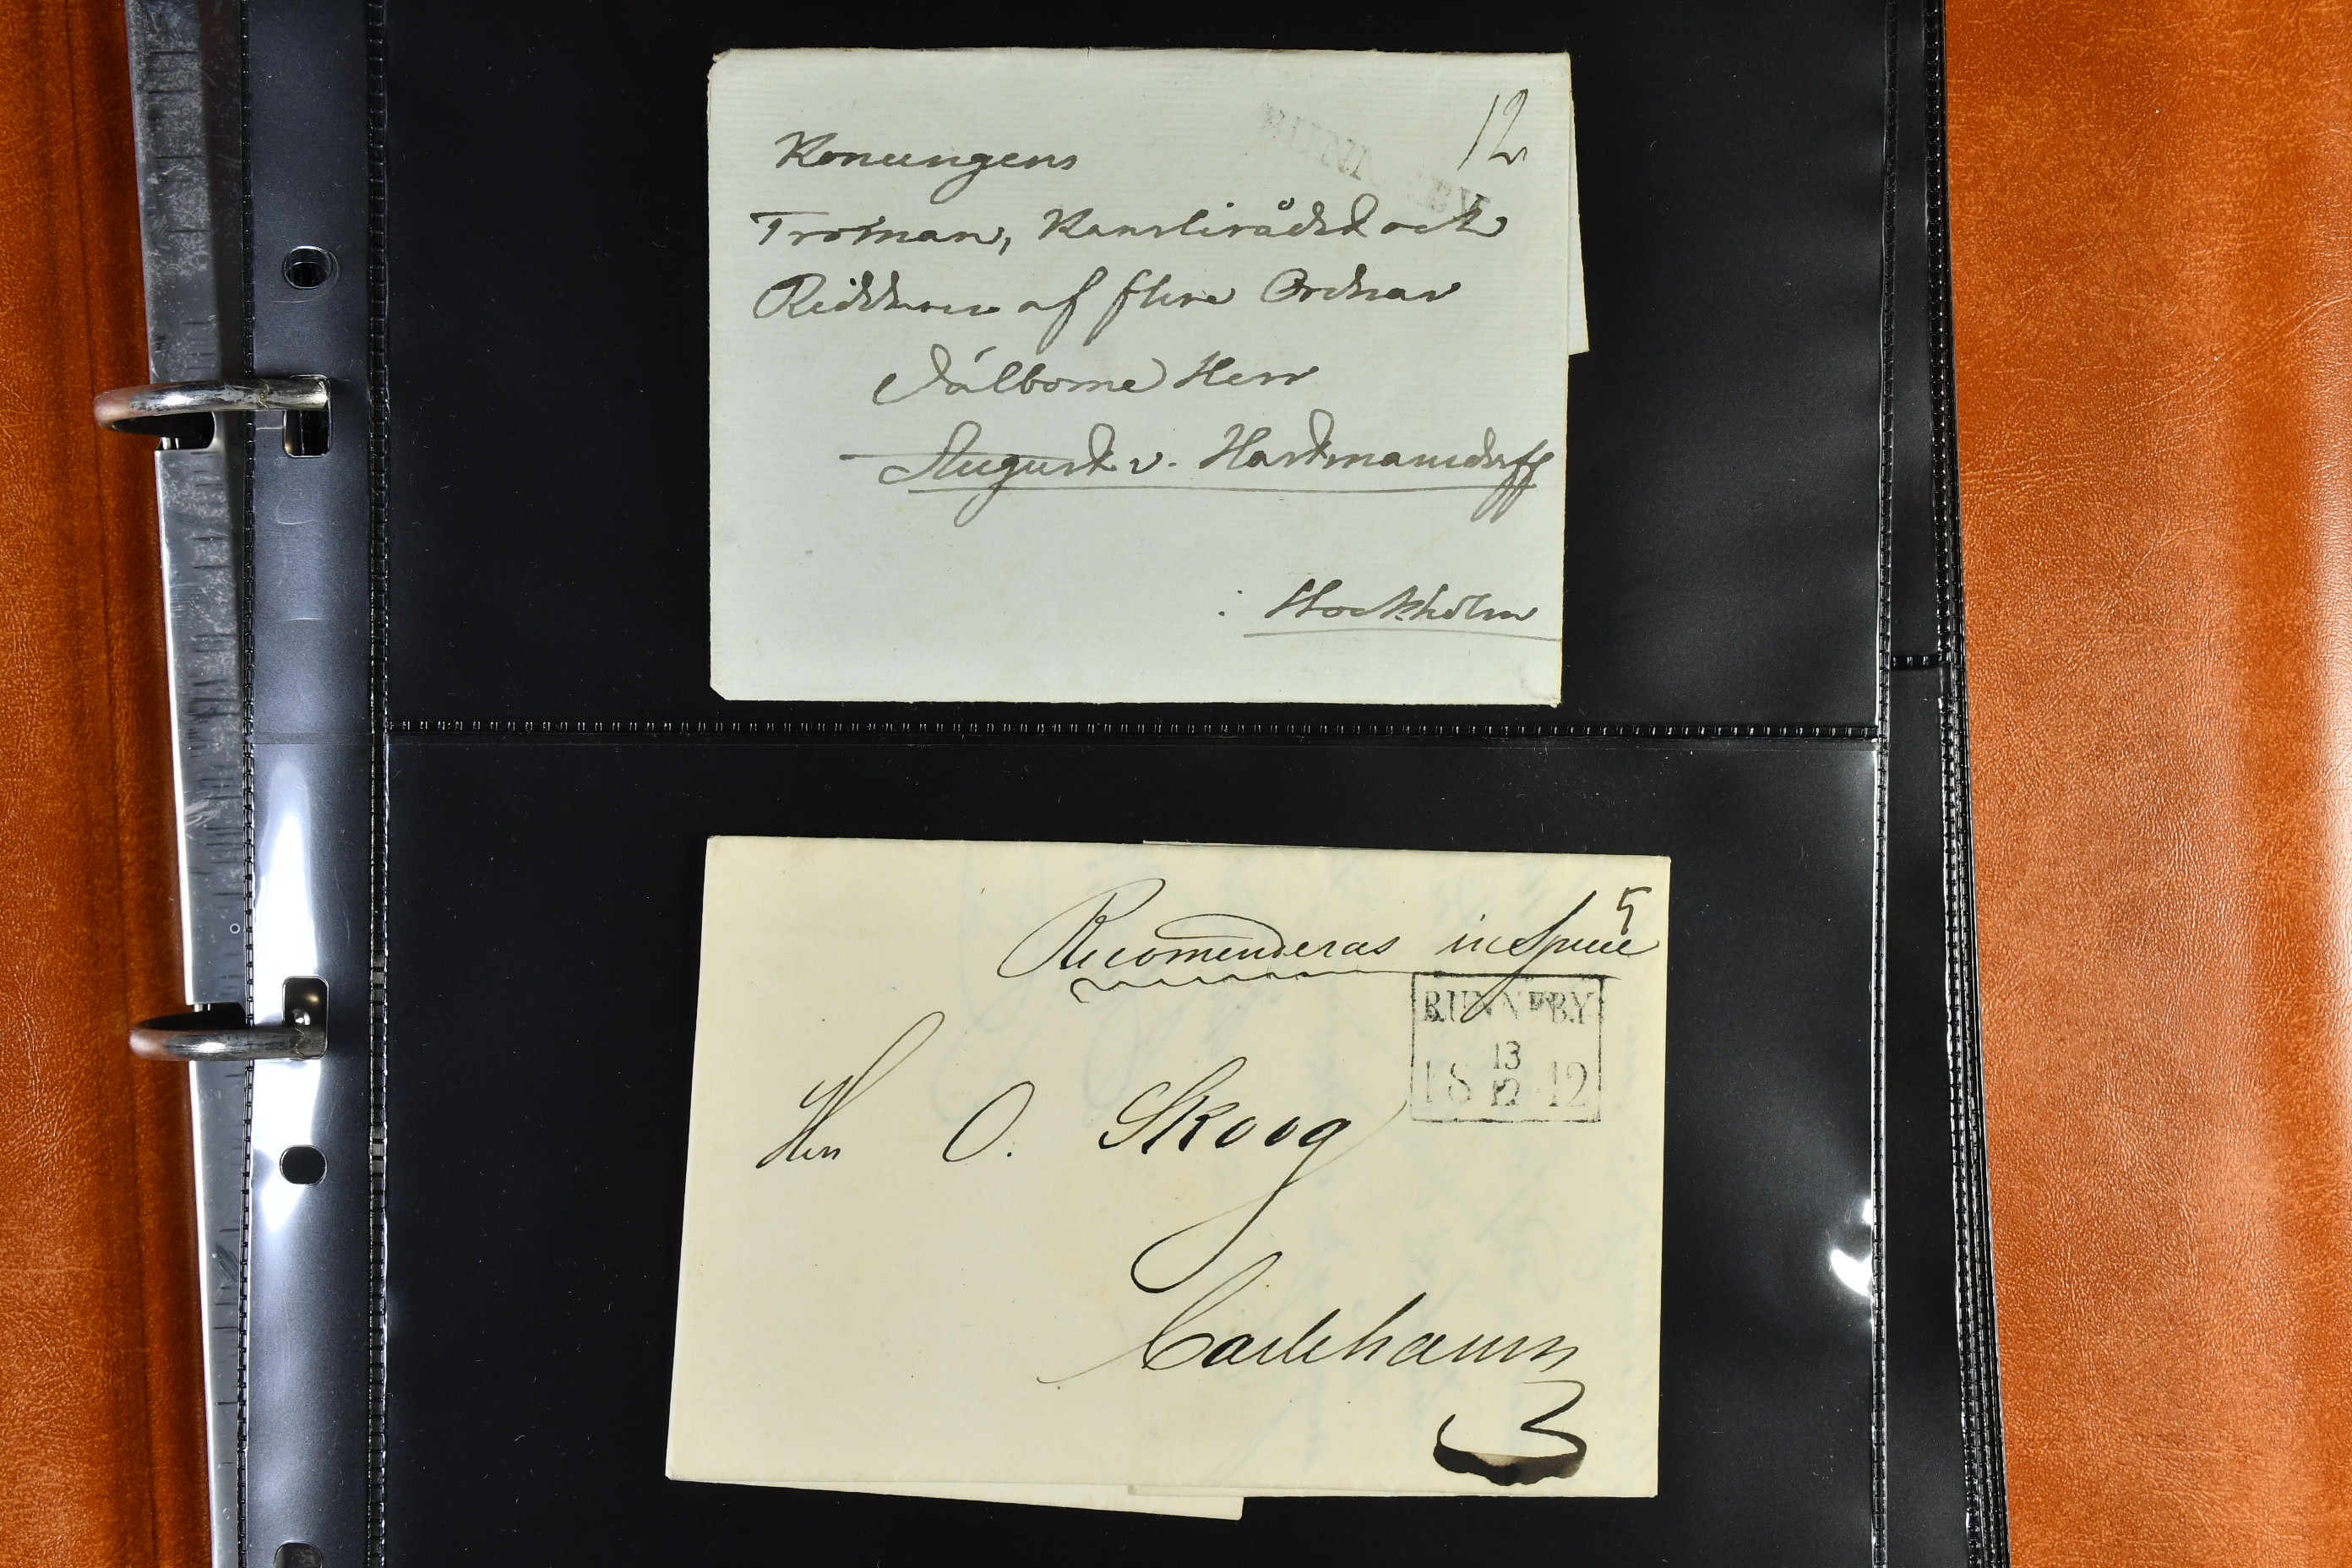 12
Konungens
Troman, Kanslirådet och
Riddaren af flere Ordnar
Välborne Herr
August v. Hartmansdorff
: Stockholm
5
Recomenderas
RUNNEBY
13
18 12 42
Herr O. Skoog
Carlshamn